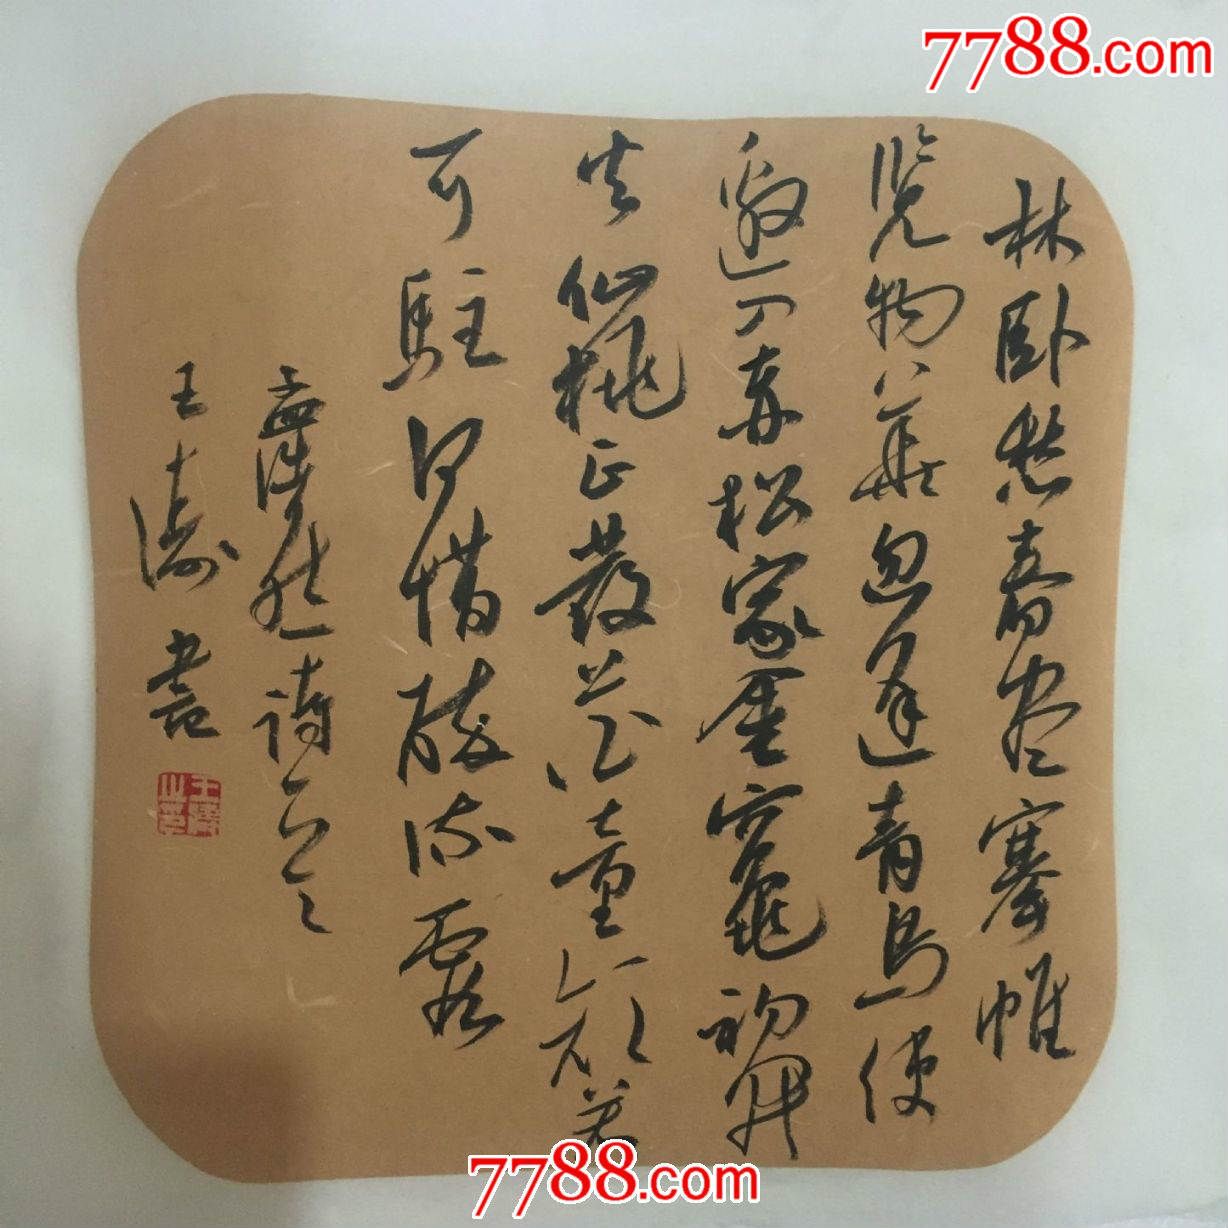 林卧愁春尽搴帷
览物華忽逢青鸟使
邀入赤松家金竈初开
火仙桃正發花童颜若
可駐何惜醉流霞
孟浩然詩
王涛書
7788.com
7788.com